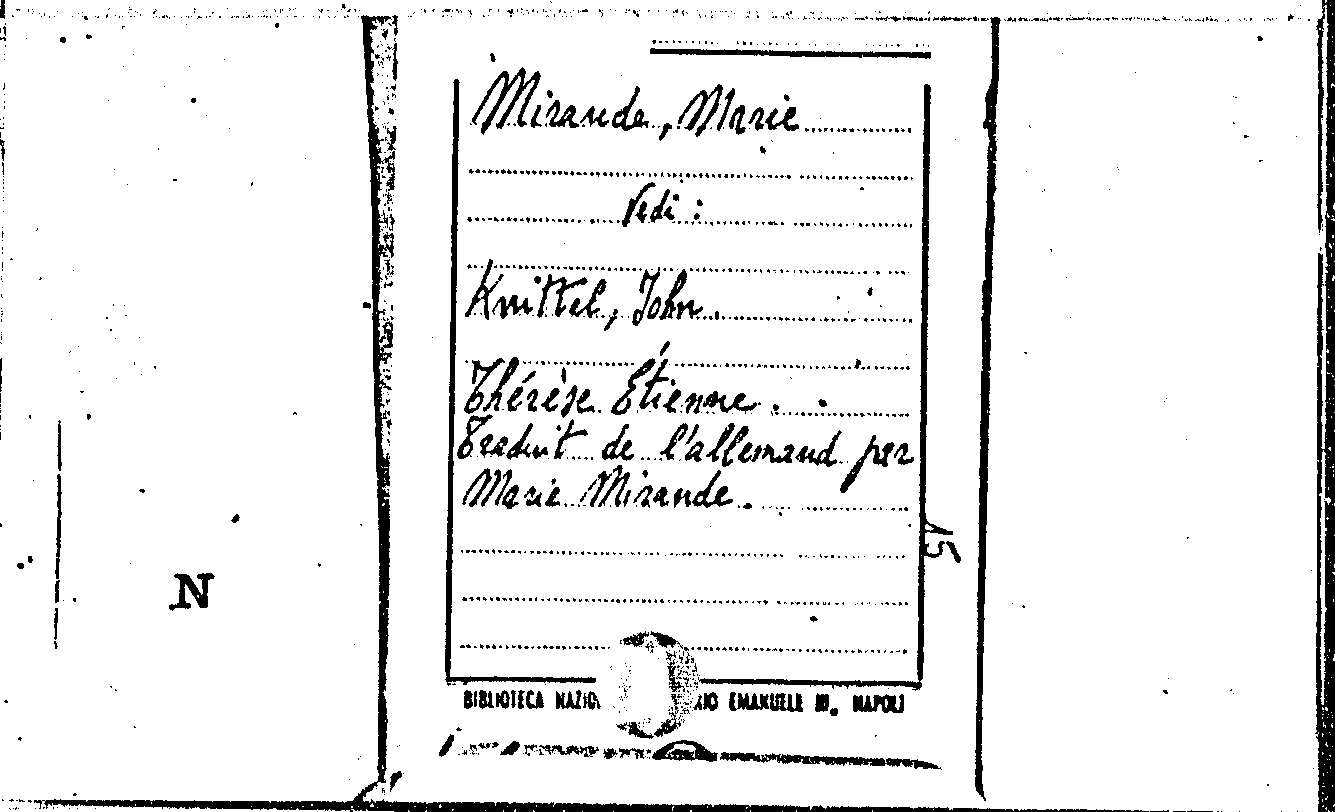 Mirande, Marie
Vedi :
Knittel, John.
Thérèse Étienne.
Traduit de l'allemand par
Marie Mirande.
15
N
BIBLIOTECA EMANUELE III, NAPOLI